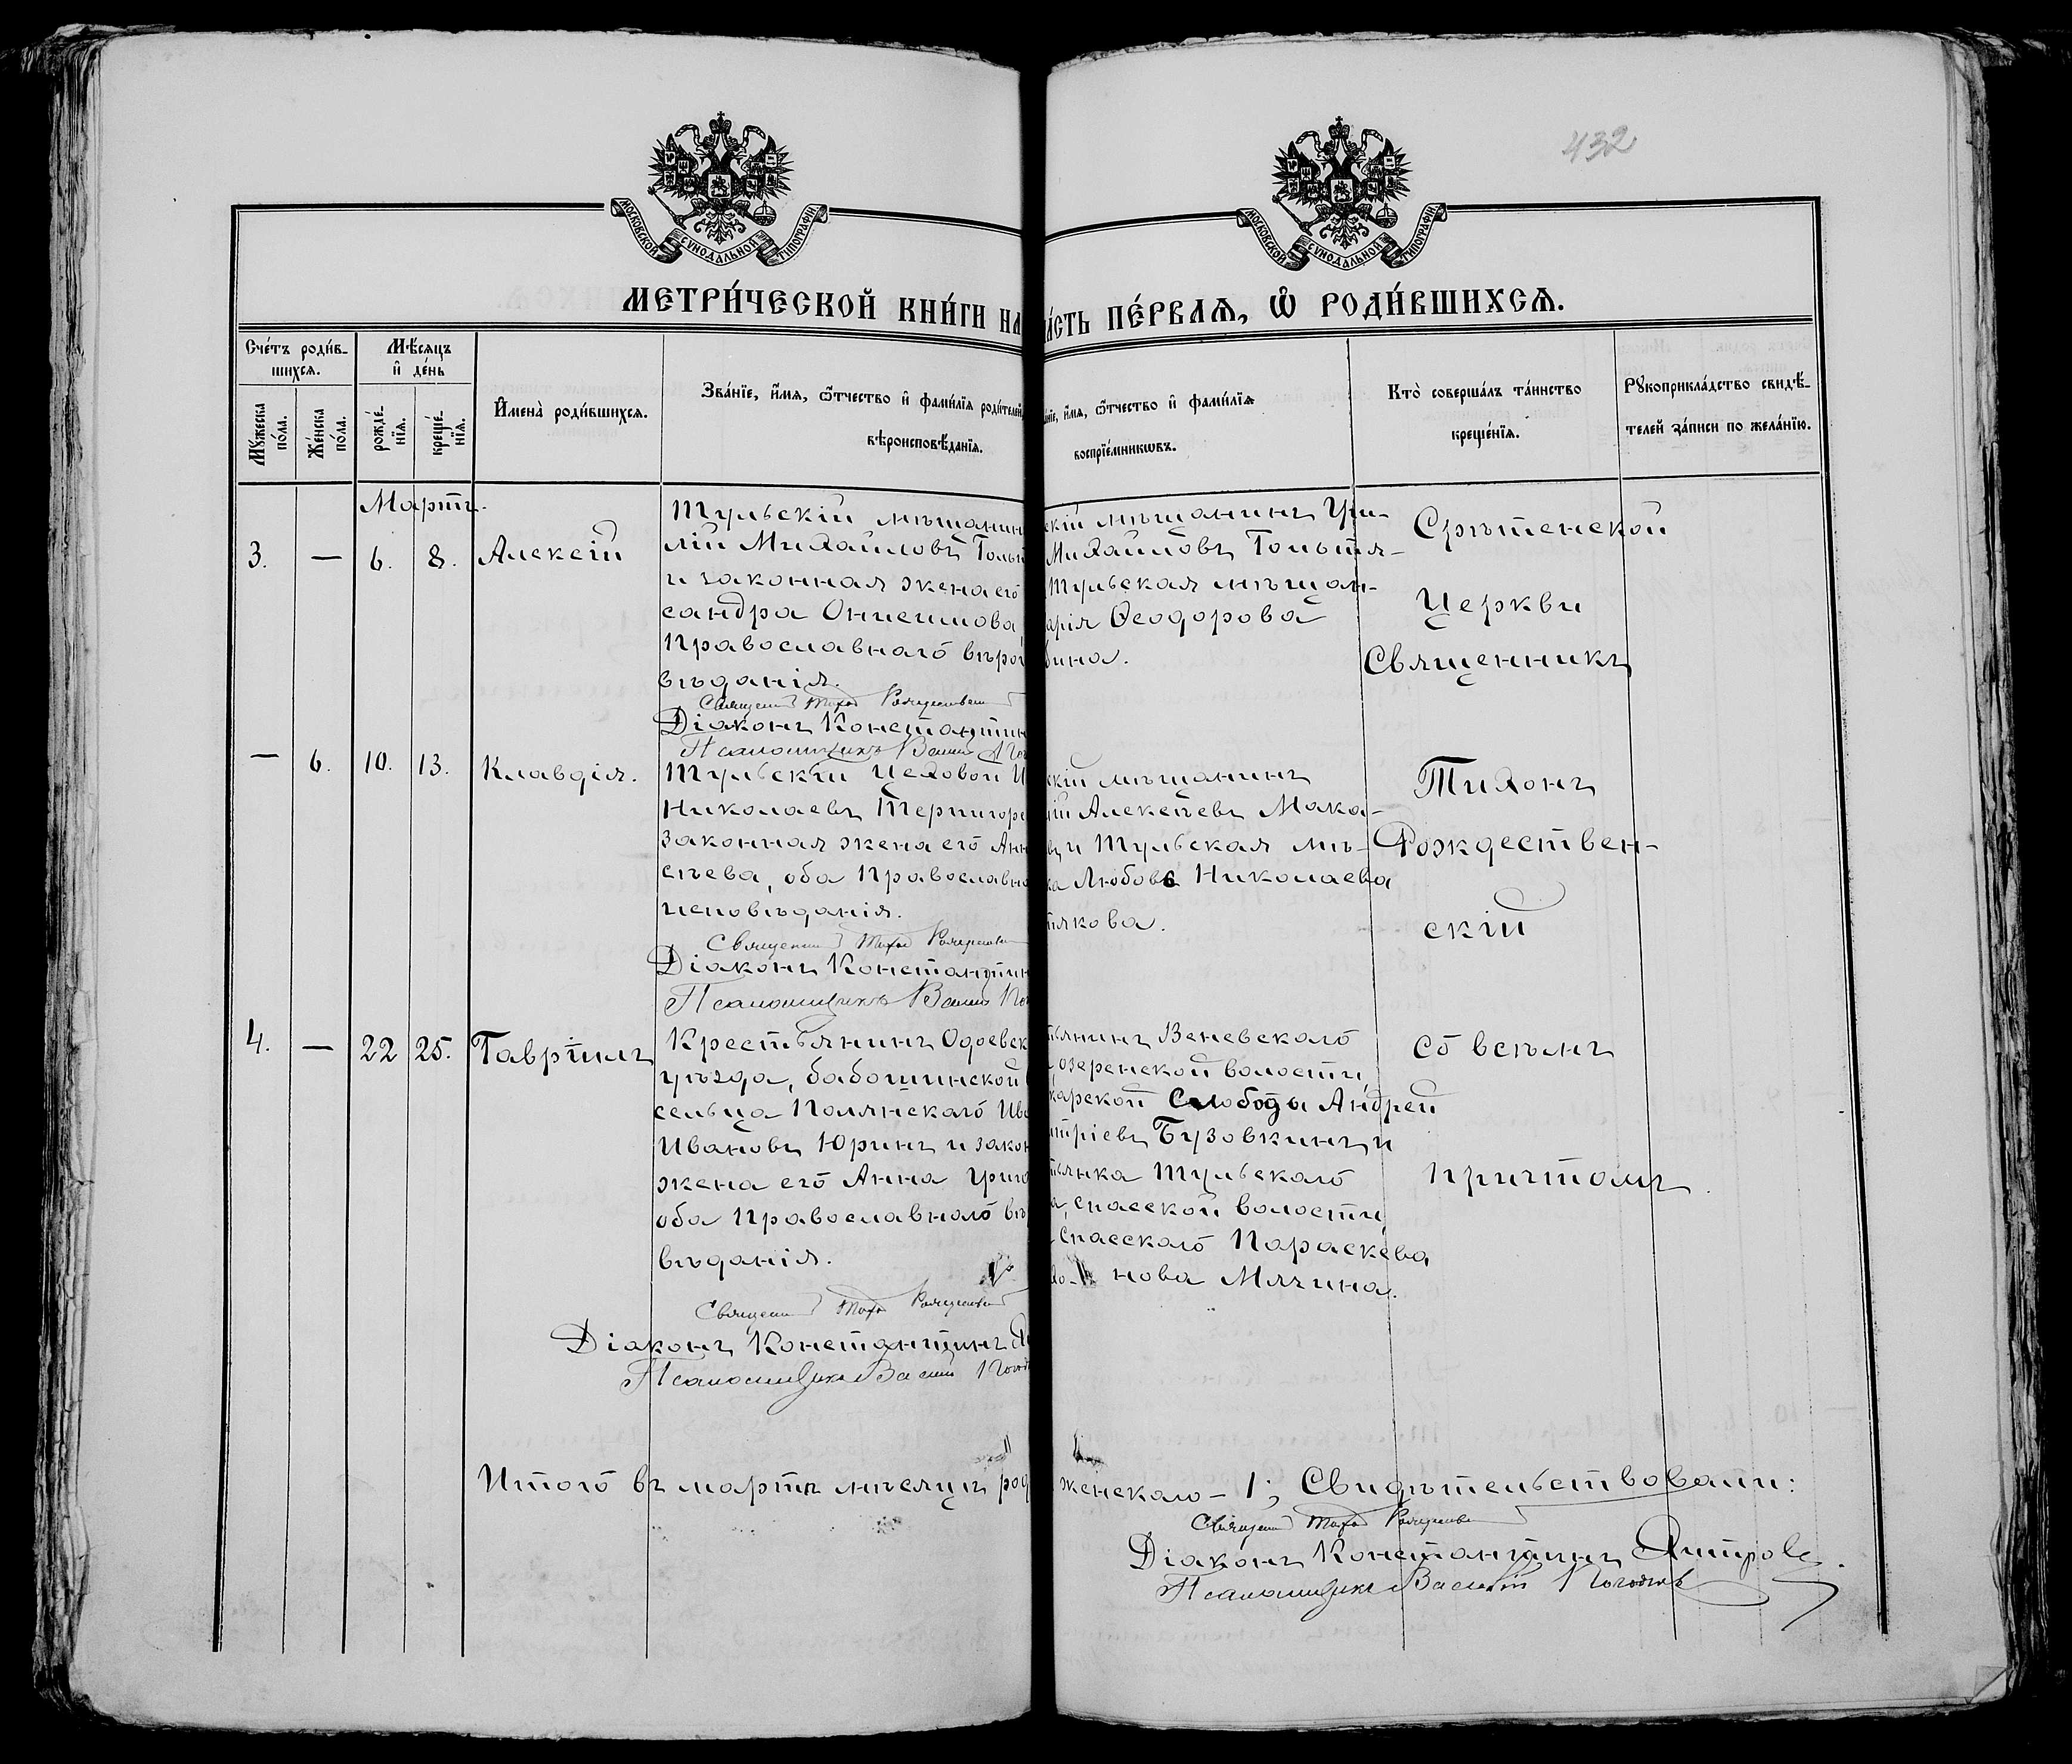 432
МОСКОВСКОЙ СѴНОДАЛЬНОЙ ТИПОГРАФІИ
МОСКОВСКОЙ СѴНОДАЛЬНОЙ ТИПОГРАФІИ
МЕТРИ́ЧЕСКОЙ КНИ́ГИ НА
А́СТЬ ПЕ́РВАѦ, Ѽ РОДИ́ВШИХСѦ.
Сче́тъ роди́в-
шихсѧ.
Мѣ́сѧцъ
и҆ де́нь
Мꙋ́жеска
по́ла.
Же́нска
по́ла.
рожде́-
нїѧ.
креще́-
нїѧ.
И҆мена̀ роди́вшихсѧ.
Зва́нїе, и҆́мѧ, ѻ҆́тчество и҆ фами́лїѧ роди́телей,
вѣроисповѣ́данїѧ.
а́нїе, и҆́мѧ, ѻ҆́тчество и҆ фами́лїѧ
воспрїе́мникѡвъ.
Кто̀ соверша́лъ та́инство
креще́нїѧ.
Рꙋкоприкла́дство свидѣ́-
телей за́писи по жела́нїю.
Мартъ.
3. — 6. 8. Алексій
Тульскій мѣщанин
лій Михайловъ Гольт
и законная жена его
сандра Онисимова,
Православнаго вѣрои
вѣданія.
Священ Тихо Рождественс
Діаконъ Константин
Псаломщикъ Васил
скій мѣщанинъ Гри-
Михаиловъ Гольтя-
Тульская мѣщан-
арія Ѳеодорова
бина.
Срѣтенской
Церкви
Священникъ
— 6. 10. 13. Клавдія.
Тульскій Цеховой И
Николаевъ Терпигоре
законная жена его Анн
сѣева, оба Православна
исповѣданія.
Священ Тихо Рождествен
Діаконъ Константин
Псаломщикъ Васил Пог
скій мѣщанинъ
ій Алексѣевъ Мака-
въ и Тульская мѣ-
ка Любовь Николаева
тякова.
Тихонъ
Рождествен-
скій
4. — 22 25. Гавріилъ
Крестьянинъ Одоевск
уѣзда, бабошинской
сельца Полянскаго Ива
Ивановъ Юринъ и закон
жена его Анна Григо
оба Православнаго вѣ
вѣданія.
Священ Тихо Рождествен
Діаконъ Константинъ
Псаломщикъ Васил Погод
тьянинъ Веневскаго
озеренской волости,
карской Слободы Андрей
итріевъ Бузовкинъ и
тьянка Тульскаго
а, спасской волости,
Спасскаго Параскева
нова Мячина.
со всѣмъ
причтомъ.
Итого въ мартѣ мѣсяцѣ род
женскаго – 1; Свидѣтельствовали:
Священ Тихо Рождествен
Діаконъ Константинъ
Псаломщикъ Василій Погодинъ